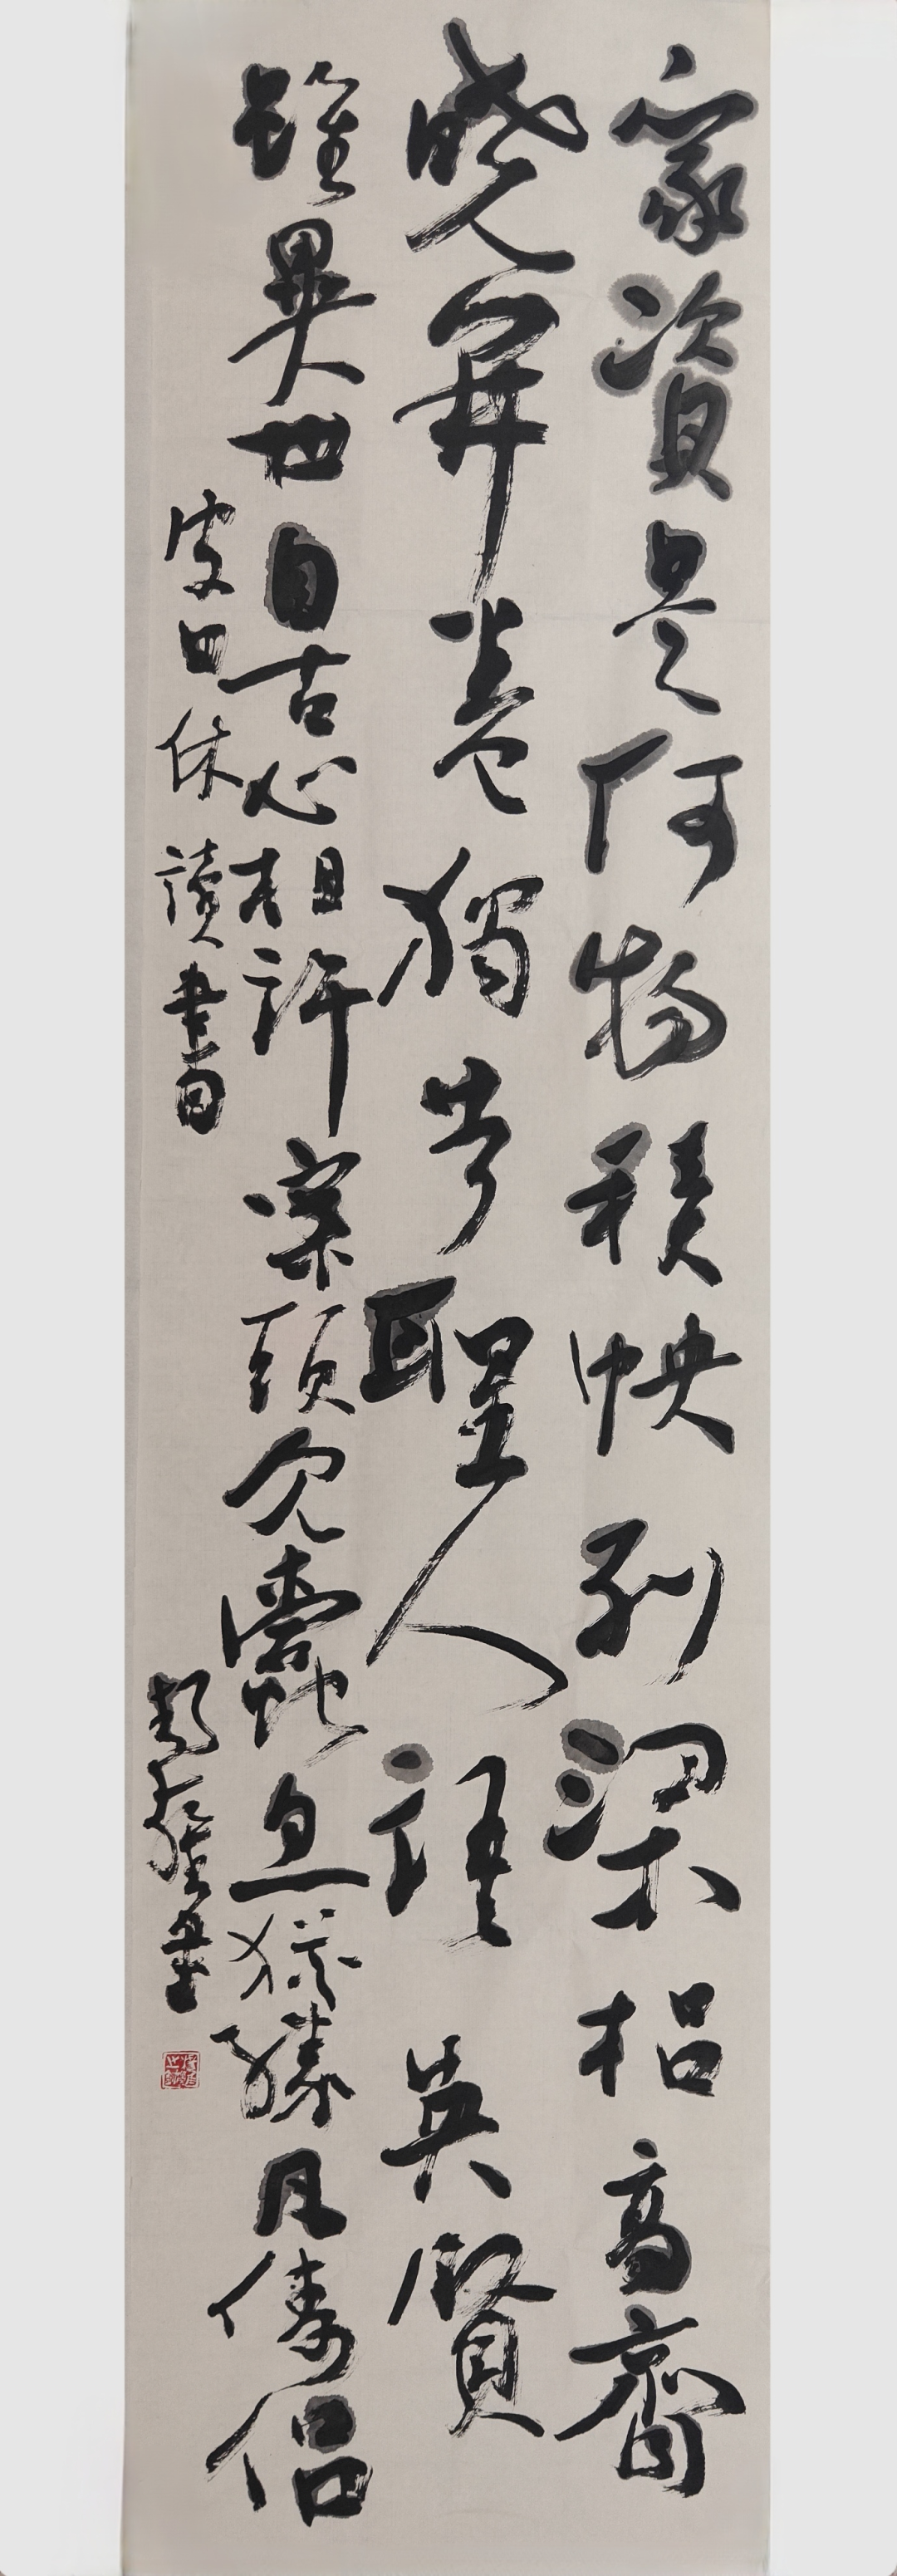 家資是何物積帙列梁梠高齋
曉開卷獨共聖人語英賢
雖異世自古心相許案頭見蠹魚猶勝凡儔侶
皮日休讀書
書